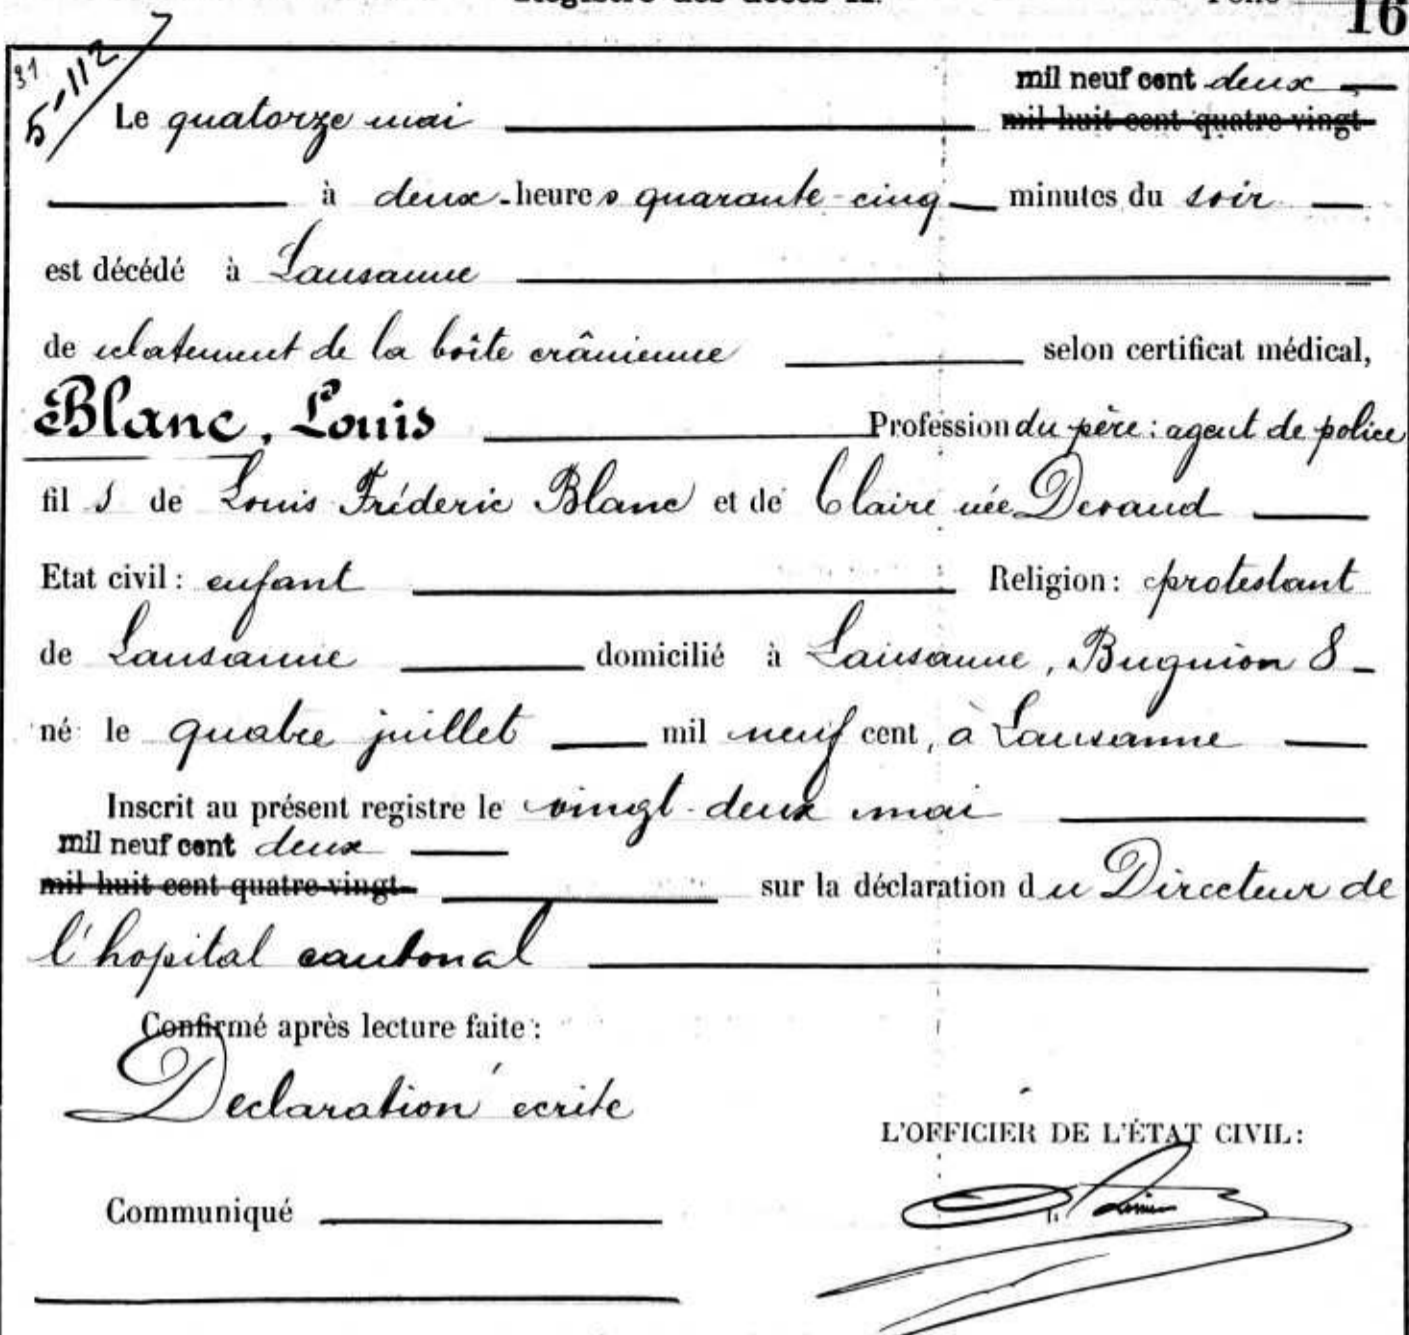 Registre des décès 16
31
5-112
mil neuf cent deux
Le quatorze mai mil huit cent quatre-vingt
à deux heures quarante-cinq minutes du soir
est décédé à Lausanne
de eclatement de la boîte crânienne selon certificat médical,
Blanc, Louis Profession du père : agent de police
fils de Louis Fréderic Blanc et de Claire née Devaud
Etat civil : enfant Religion : protestant
de Lausanne domicilié à Lausanne, Bugnion 8
né le quatre juillet mil neuf cent, à Lausanne
Inscrit au présent registre le vingt-deux mai
mil neuf cent deux
mil huit cent quatre-vingt sur la déclaration du Directeur de
l'hopital cantonal
Confirmé après lecture faite :
Declaration écrite
L'OFFICIER DE L'ÉTAT CIVIL :
Communiqué